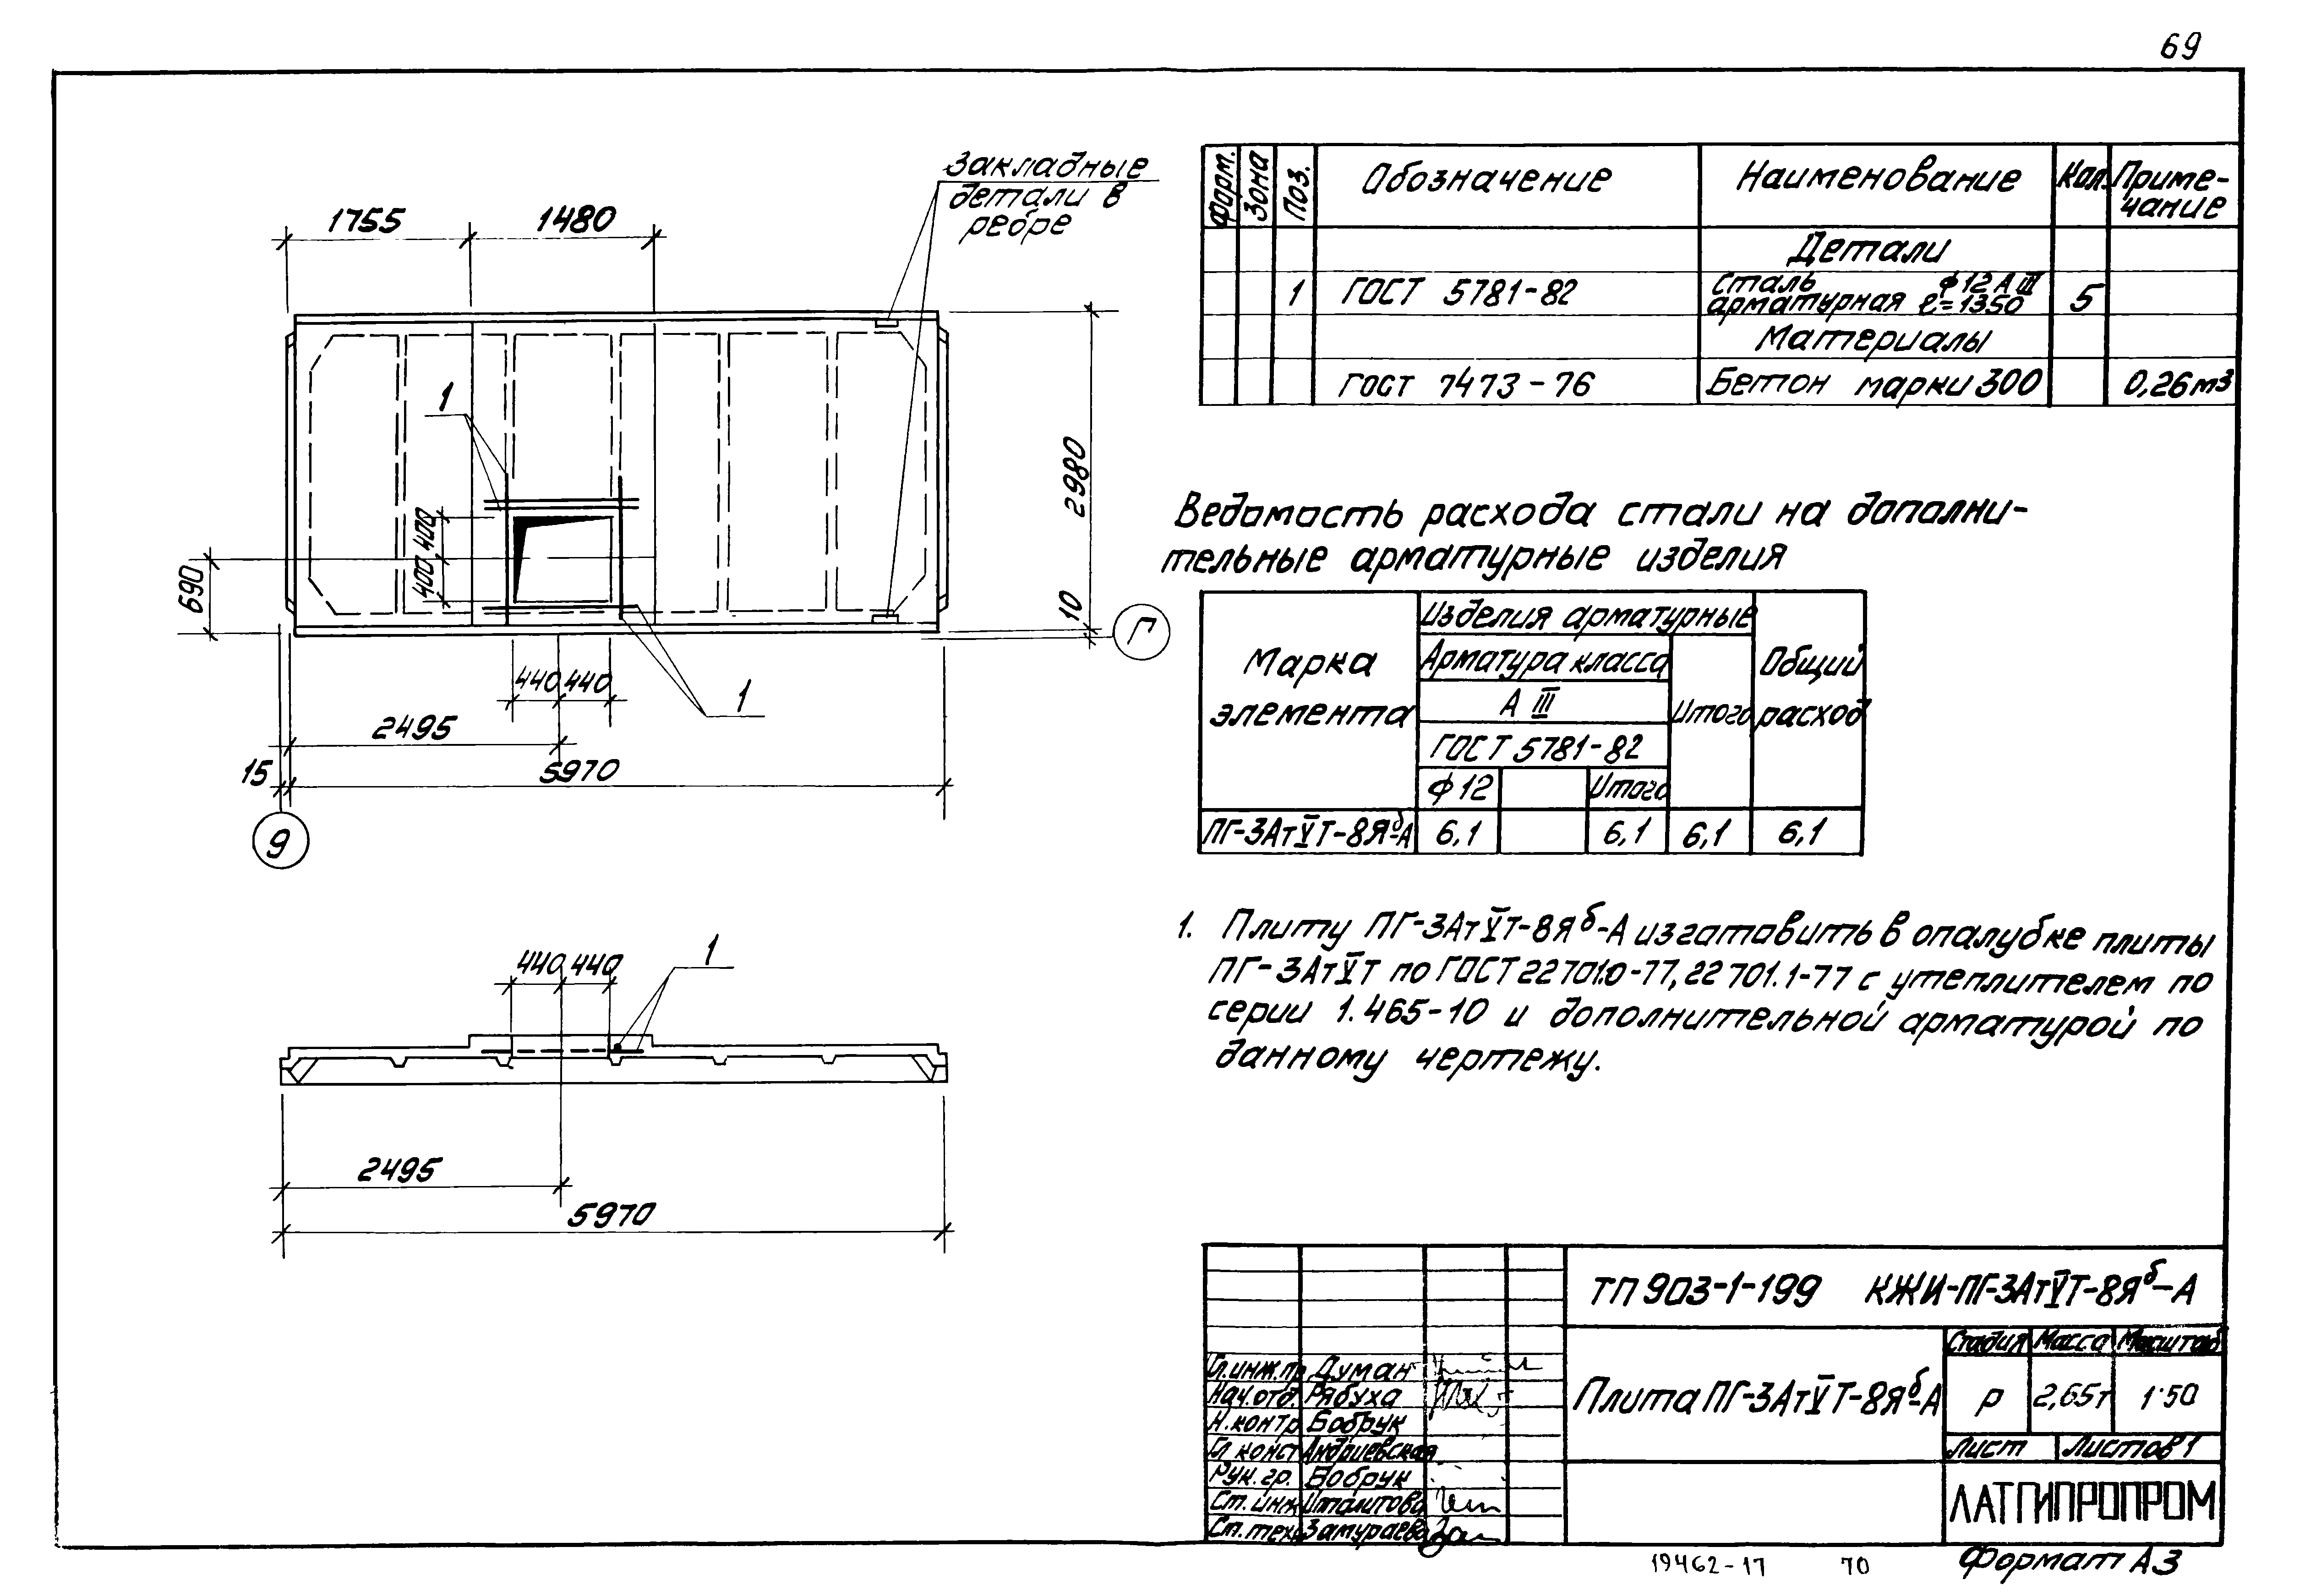 69
Закладные
детали в
ребре
1755
1480
1
400
400
690
2980
10
Г
440 440
1
2495
15
5970
9
1
440 440
2495
5970
Форм. Зона Поз. Обозначение Наименование Кол. Приме-
чание
Детали
1 ГОСТ 5781-82 Сталь ф12 А III
арматурная ℓ=1350 5
Материалы
ГОСТ 7473-76 Бетон марки 300 0,26 м³
Ведомость расхода стали на дополни-
тельные арматурные изделия
Марка
элемента
Изделия арматурные
Арматура класса
А III
ГОСТ 5781-82
ф12 Итого
Итого
Общий
расход
ПГ-3АтVТ-8Яᵟ-А 6,1 6,1 6,1 6,1
1. Плиту ПГ-3АтVТ-8Яᵟ-А изготовить в опалубке плиты
ПГ-3АтVТ по ГОСТ 22701.0-77, 22701.1-77 с утеплителем по
серии 1.465-10 и дополнительной арматурой по
данному чертежу.
ТП 903-1-199 КЖИ-ПГ-3АтVТ-8Яᵟ-А
Стадия Масса Масштаб
Плита ПГ-3АтVТ-8Яᵟ-А
Р 2,65т 1:50
Лист Листов 1
ЛАТГИПРОПРОМ
Гл.инж.пр Думан
Нач.отд. Рябуха
Н.контр Бобрук
Гл конст Андриевская
Рук.гр. Бобрук
Ст.инж
Ст.тех Замураева
19462-17 70
Формат А3